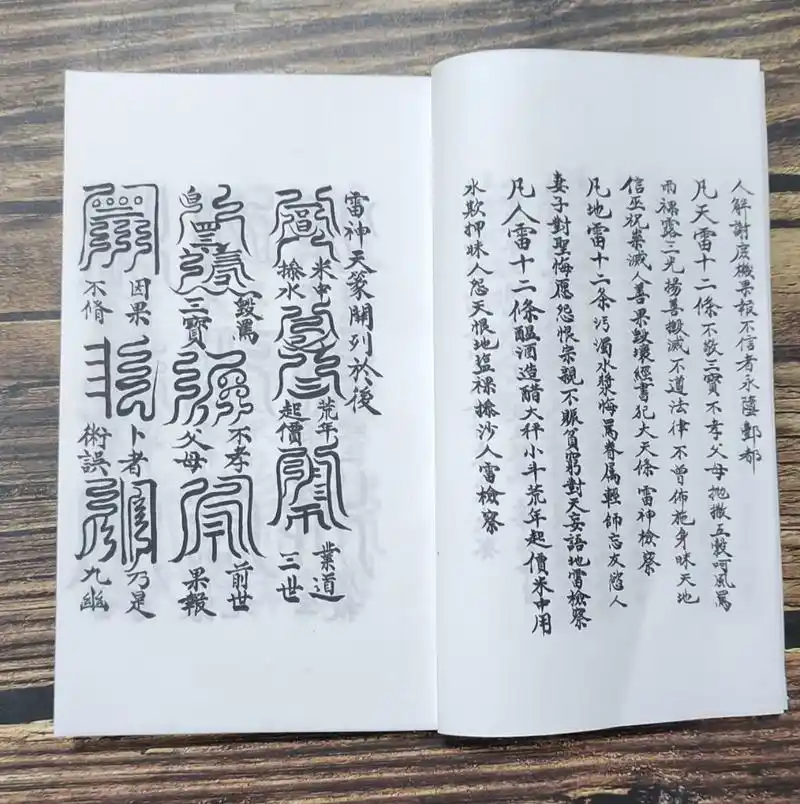 人解謝庶機果報不信者永墮酆都
凡天雷十二條不敬三寶不孝父母抛撒五穀呵風罵
雨裸露三光揚善掇滅不遵法律不曾佈施身昧天地
信巫祝棄滅人善果毀壞經書犯大天條雷神檢察
凡地雷十二条污濁水漿侮罵眷属輕師忘友慾人
妻子對聖悔愿怨恨宗親不賑貧窮對天妄語地雷檢察
凡人雷十二條醞酒造醋大秤小斗荒年起價米中用
水欺押昧人怨天恨地盐裸掺沙人雷檢察
雷神天篆開列於後
米中
掺水
荒年
起價
業道
三世
毀罵
三寶
不孝
父母
前世
果報
因果
不脩
卜者
術誤
乃是
九幽